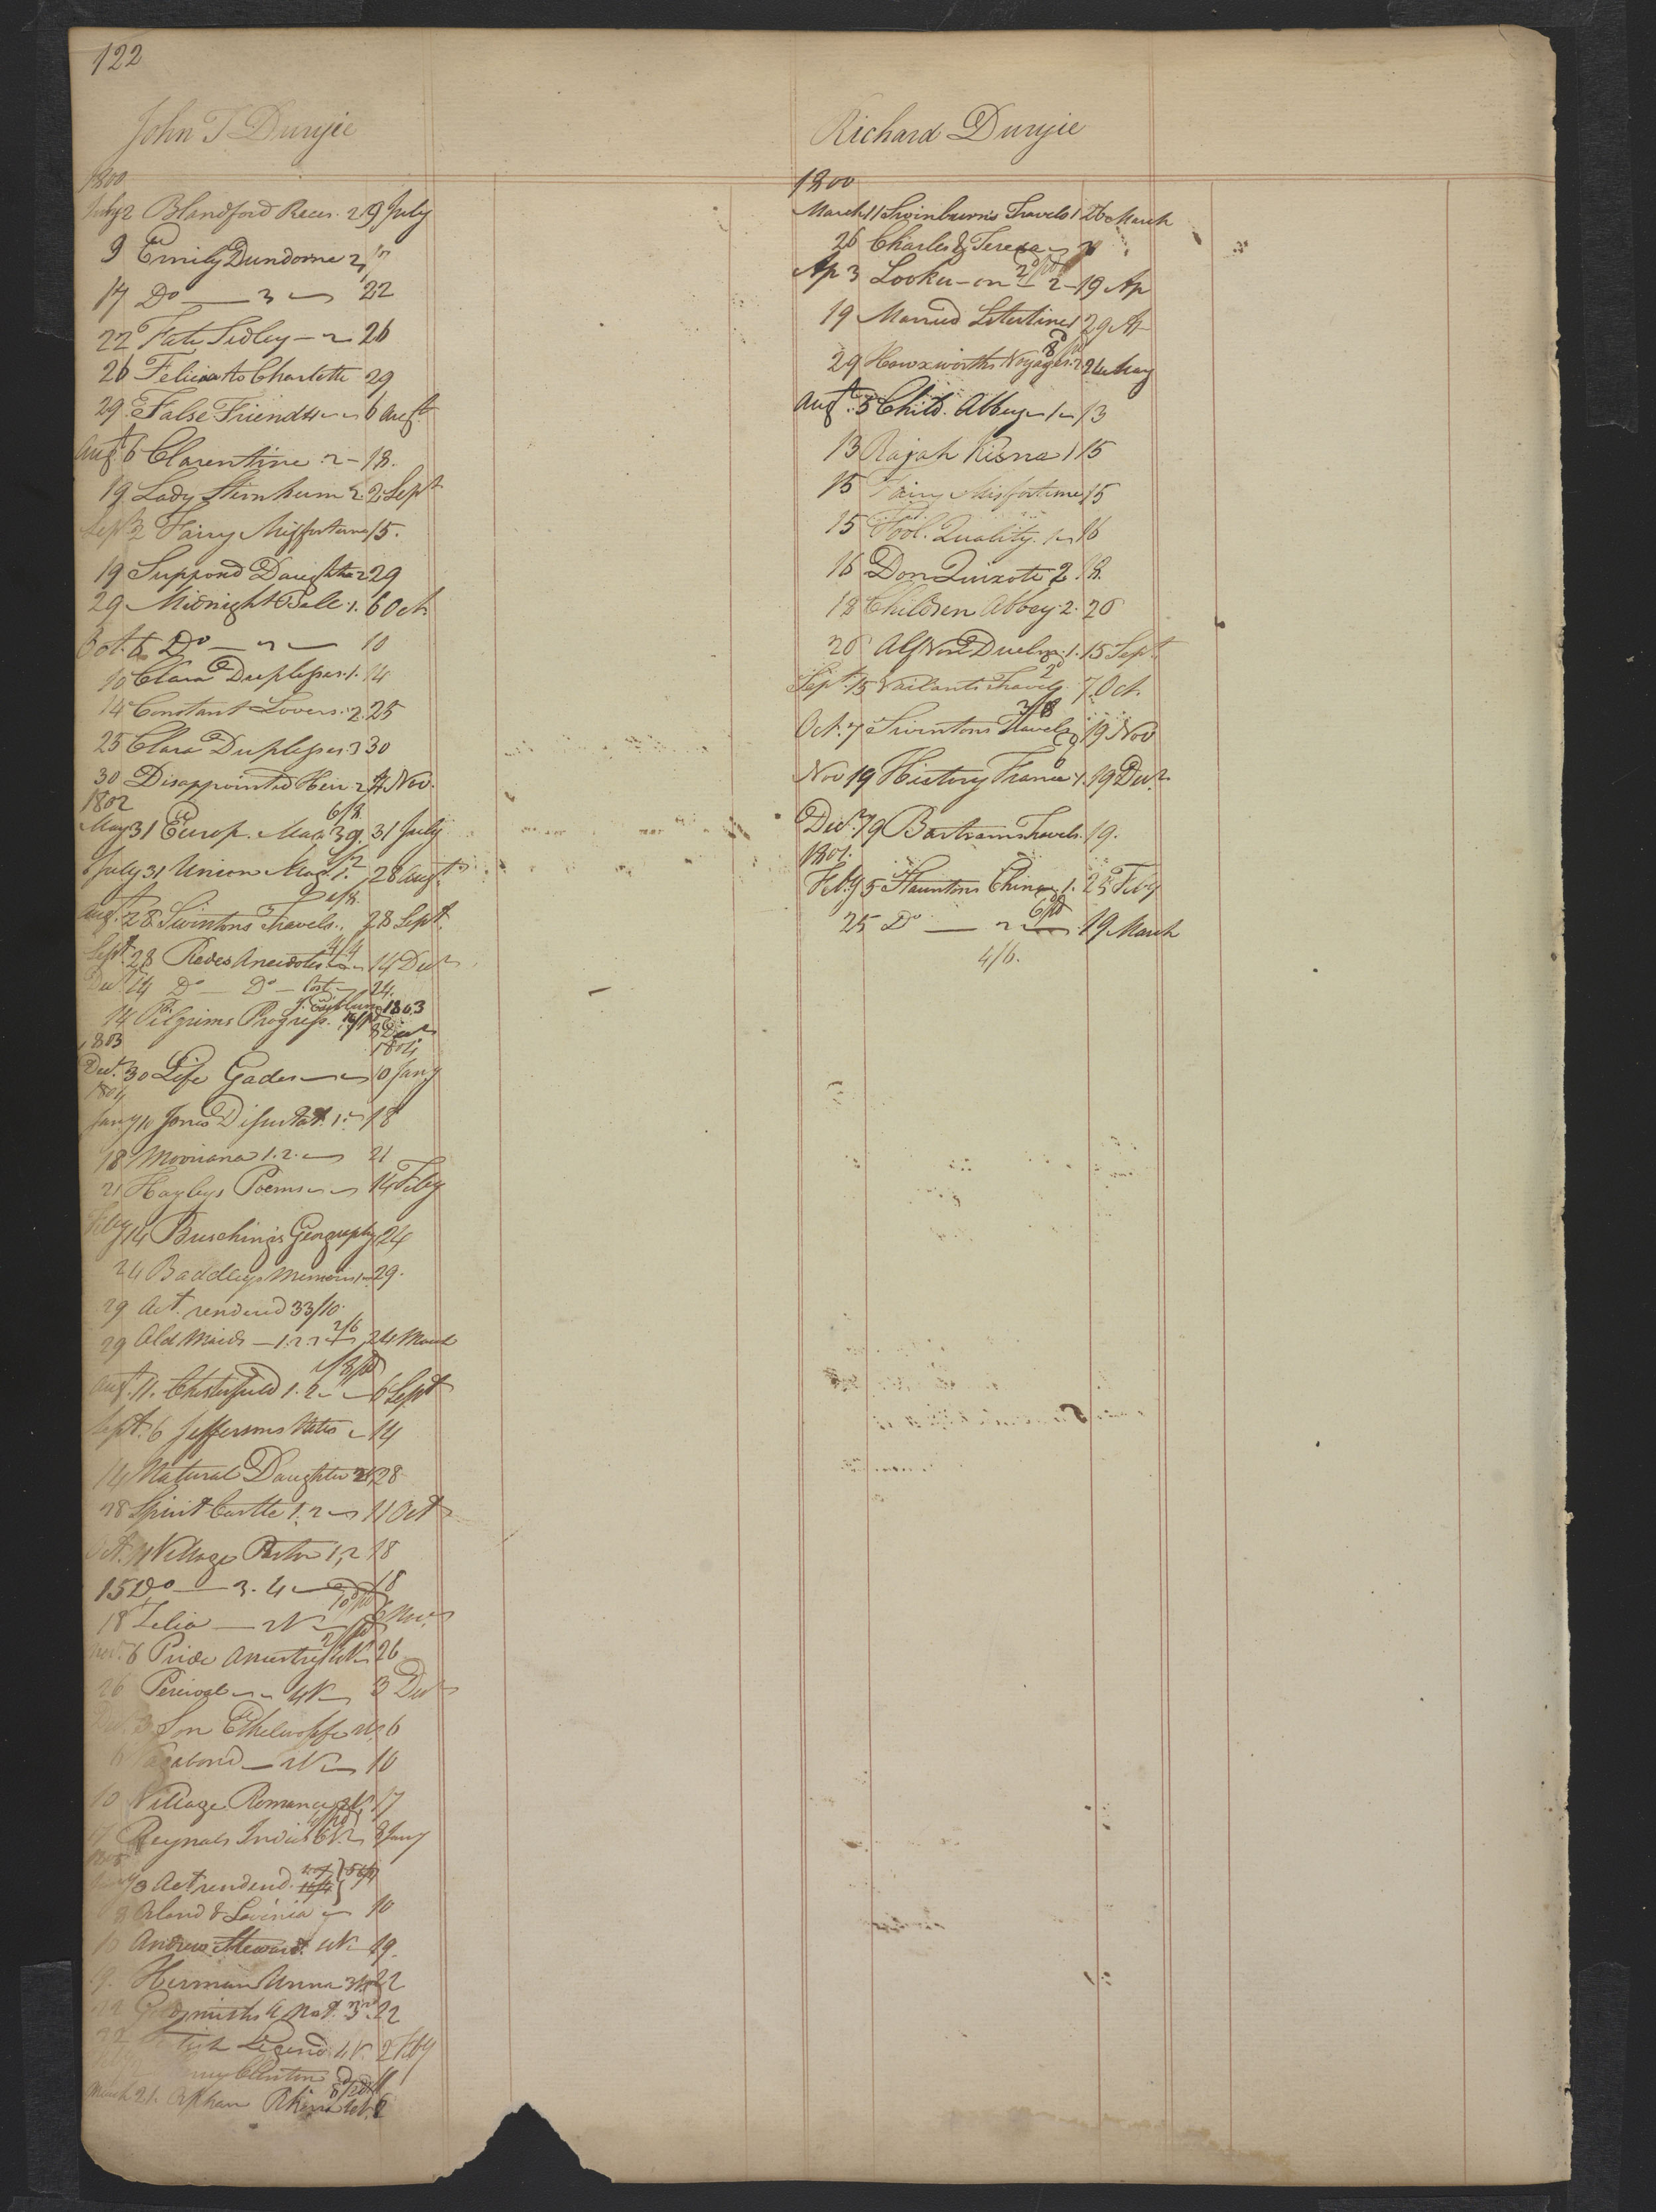 122
John T Duryie
1800
July 2 Blandford Races. 2. 9 July
9 Emily Dundorne 2 17
17 Do — 3 22
22 Kate Sidley — 2 26
26 Felicia to Charlotte 29
29 False Friends 6 Augt
Augt 6 Clarentine 2 — 18.
19 Lady Sternheim 2. 2 Sept
Sept 2 Fairy Misfortunes 15.
19 Supposd Daughter 2 29
29 Midnight Bell. 1. 6 Oct
Oct. 6 Do — 2 — 10
10 Clara Duplessis. 1. 14
14 Constant Lovers. 2. 25
25 Clara Duplessis 3 30
30 Disappointed Heir 2 4 Nov.
1802
May 31 Europ. Mag 39. 31 July
July 31 Union Mag 1. 28 Augt
Augt. 28 Swintons Travels. 28 Sept.
Sept. 28 Redes Anecdotes 4/4 14 Decr
Decr 14 Do — Do — 24.
14 Pilgrims Progress. 1803
8 Decr
1803
1804
Decr. 30 Life Gades 10 Jany
1804
Jany 10 Jones Disputat. 1. 18
18 Mooriana 1. 2. 21
21 Hayleys Poems 14 Feby
Feby 14 Buschings Geography 24
24 Baddleys Memoirs 29.
29 Act. rendered 33/10.
29 Old Maids — 1. 2. 2/6 24 March
Augt. 11. Chesterfield 1. 2 6 Sept
Sept. 6 Jeffersons Notes 14
14 Natural Daughter 2V 28
28 Spirit Castle 1. 2 11 Oct
Oct. 11 Village Pastor 1, 2 18
15 Do — 3. 4 18
18 Zelia — 2V 6 Nov.
Nov. 6 Pride Ancestry 4V. 26
26 Percival 4V 3 Decr
Decr. 3 Son Ethelwolfe 6
6 Vagabond — 2V 10
10 Village Romance 2V. 17
17 Reynals Indies 6V. 8 Jany
1805
Jany 8 Act rendered
8 Orland & Lavinia 10
10 Andrew Steward. 4V 19.
19. Herman Unna 3V 22
22 Goldsmiths A Nat. 3. 22
22 Legend 4V. 2 Feby
Clinton
March 21. Orphan Rhine
Richard Duryie
1800
March 11 Swinburns Travels 1 26 March
26 Charles & Teresa
Ap 3 Looker-on 2 — 19 Ap
19 Married Libertine 1 29 Ap
29 Hawxworths Voyages. 2. 24 May
Augt. 5 Child. Abbey 1 13
13 Rajah Kisna 1 15
15 Fairy Misfortunes 15
15 Fool. Quality. 1 16
16 Don Quixote 2. 18.
18 Children Abbey. 2. 26
26 Alf Von Duelm. 1. 15 Sept
Sept. 15 Vailants Travels 7 Oct
Oct. 7 Swintons Travels 19 Nov
Nov 19 History France 1. 19 Decr.
Decr. 19 Bartrams Travels. 19.
1801.
Feby 5 Stauntons China. 1. 25 Feby
25 Do — 2 19 March
4/6.